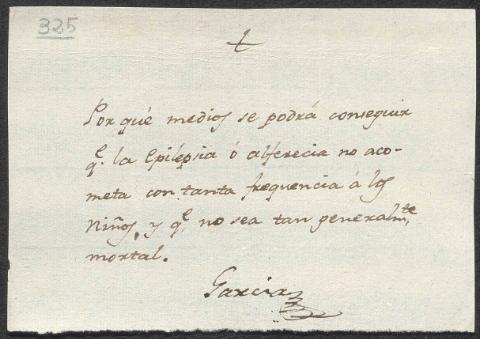 325
Por qué medios se podrá conseguir
q.e la Epilépsia ó alferecia no aco-
meta con tanta frequencia á los
Niños, y q.e no sea tan generalm.te
mortal.
Garcia